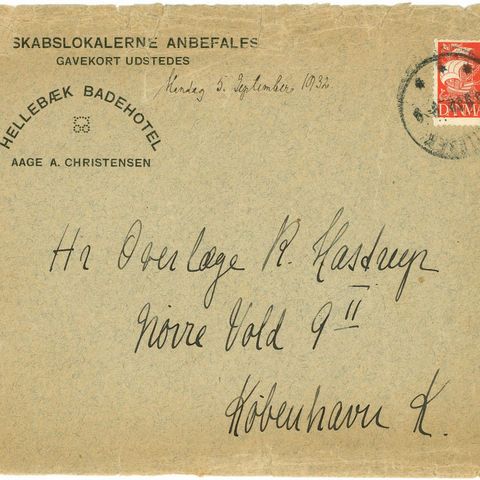 SKABSLOKALERNE ANBEFALES
GAVEKORT UDSTEDES
Mandag 5. September 1932.
HELLEBÆK BADEHOTEL
AAGE A. CHRISTENSEN
DANMA
Hr Overlæge R. Hastrup
Nørre Vold 9 II
København K.